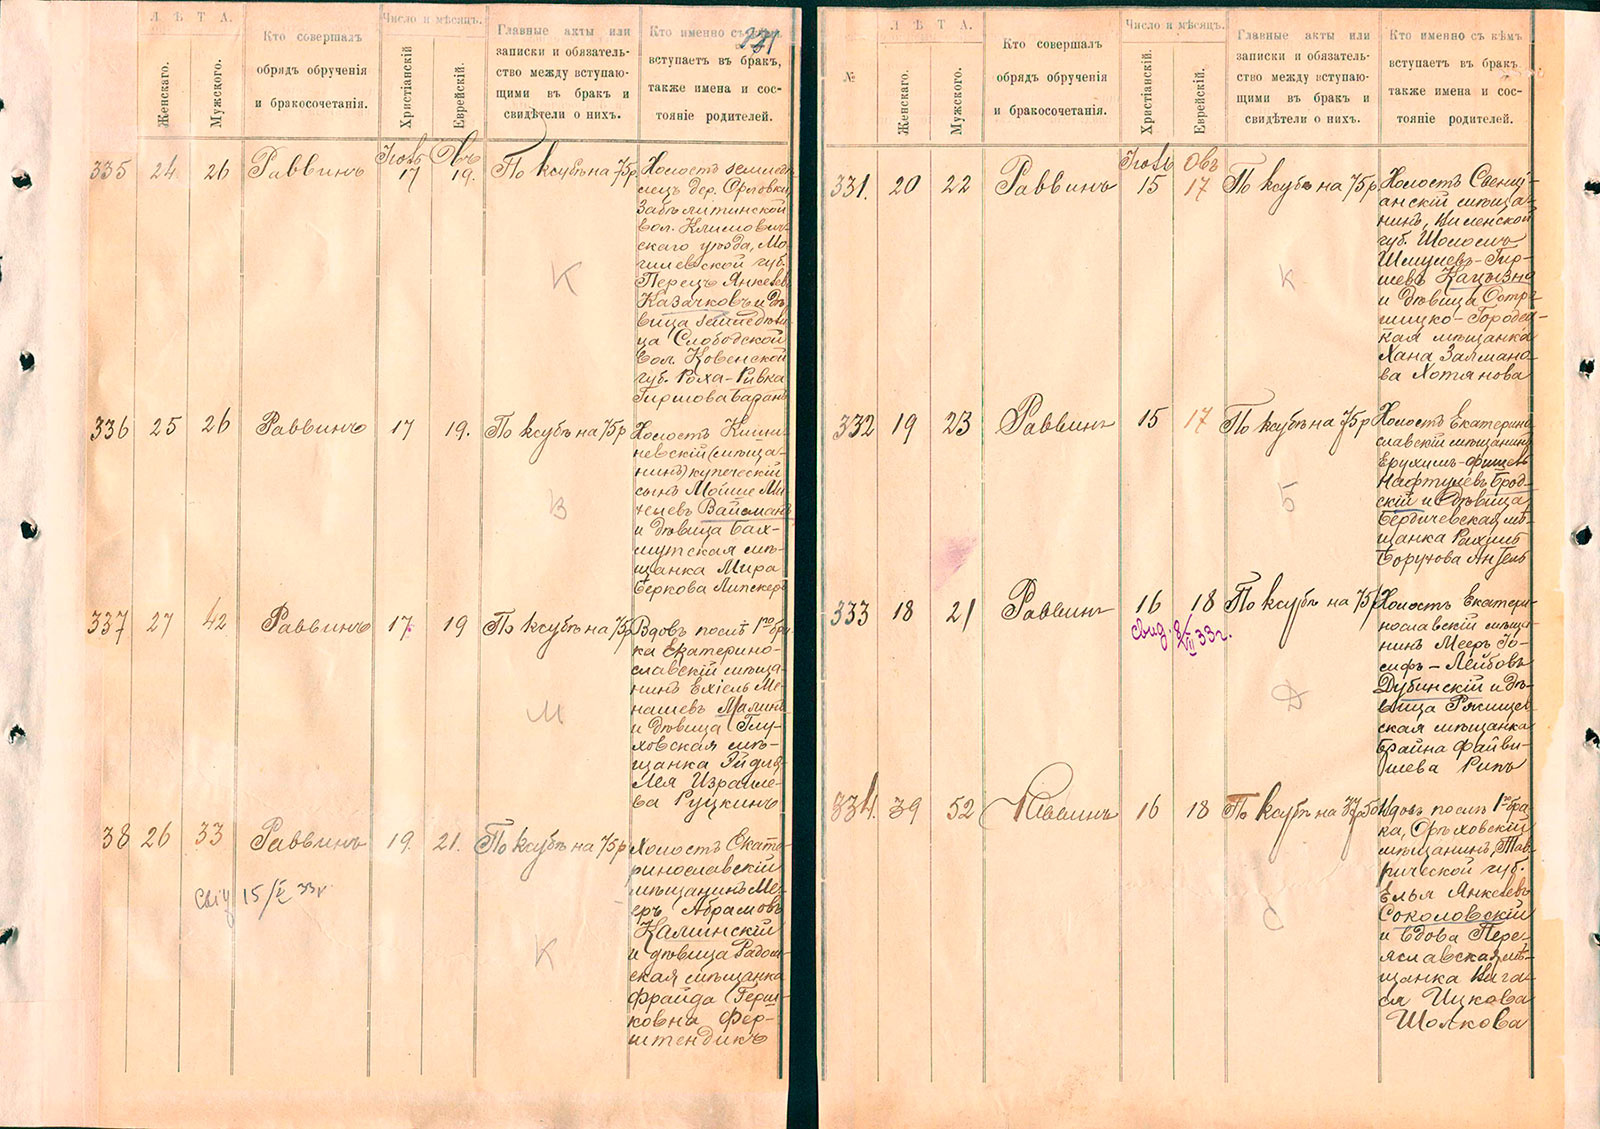 Л Ѣ Т А.
Женскаго.
Мужского.
Кто совершалъ
обрядъ обрученія
и бракосочетанія.
Число и мѣсяцъ.
Христіанскій
Еврейскій.
Главные акты или
записки и обязатель-
ство между вступаю-
щими въ бракъ и
свидѣтели о нихъ.
Кто именно съ
вступаетъ въ бракъ,
также имена и сос-
тояніе родителей.
335 24 26 Раввинъ 17 19. По ксубѣ на 75 р
Холостъ
лецъ дер.
вол. Климович-
скаго уѣзда, Мо-
гилевской губ.
Перецъ Янкелев
Казачковъ и дѣ-
вица
ца Слободской
вол. Ковенской
губ. Роха-Ривка
Гиршова Баранъ
К
336 25 26 Раввинъ 17 19. По ксубѣ на 75 р
Холостъ Киши-
невскій (мѣща-
нинъ) купеческій
сынъ Мойше Ми-
хелевъ Вайсманъ
и дѣвица Бах-
мутская мѣ-
щанка Мира
Беркова Липскеръ
В
337 27 42 Раввинъ 17 19 По ксубѣ на 75 р
Вдовъ послѣ 1го бра
ка Екатерино-
славскій мѣща-
нинъ Ехіель Ме-
нашевъ Малинъ
и дѣвица Глу-
ховская мѣ-
щанка Эйдля-
Лея Израиле-
ва Руцкинъ
М
38 26 33 Раввинъ 19. 21. По ксубѣ на 75 р
Холостъ Екате-
ринославскій
мѣщанинъ Ме-
еръ Абрамовъ
Калинскій
и дѣвица Радом-
ская мѣщанка
Фрайда Герш-
ковна Фер-
штендикъ
К
15/V 33 г
№
Л Ѣ Т А.
Женскаго.
Мужского.
Кто совершалъ
обрядъ обрученія
и бракосочетанія.
Число и мѣсяцъ.
Христіанскій.
Еврейскій.
Главные акты или
записки и обязатель-
ство между вступаю-
щими въ бракъ и
свидѣтели о нихъ.
Кто именно съ кѣмъ
вступаетъ въ бракъ
также имена и сос-
тояніе родителей.
331. 20 22 Раввинъ 15 17 По ксубѣ на 75 р
Холостъ Свенці-
анскій мѣща-
нинъ, Виленской
губ. Шоломъ
Шмулевъ-Гир-
шевъ
и дѣвица Остро-
шицко-Городец-
кая мѣщанка
Хана Залмано-
ва Хотянова
к
332 19 23 Раввинъ 15 17 По ксубѣ на 75 р
Холостъ Екатерино
славскій мѣщанинъ
Ерухимъ-Фишель
Нафтулевъ Брод-
скій и дѣвица
Бердичевская мѣ-
щанка Рахиль
Борухова Ангель
Б
333 18 21 Раввинъ 16 18 По ксубѣ на 75 р
свид. 33 г.
Холостъ Екатери-
нославскій мѣща-
нинъ Мееръ Іо-
сифъ-Лейбовъ
Дубинскій и дѣ-
вица Ржищев-
ская мѣщанка
Брайна Файви-
шева Рипъ
Д
334. 39 52 Раввинъ 16 18 По ксубѣ на
Вдовъ послѣ 1го бра-
ка, Орѣховскій
мѣщанинъ, Тав-
рической губ.
Елья Янкелевъ
Соколовскій
и вдова Пере-
яславская мѣ-
щанка
Ицкова
Шолкова
С